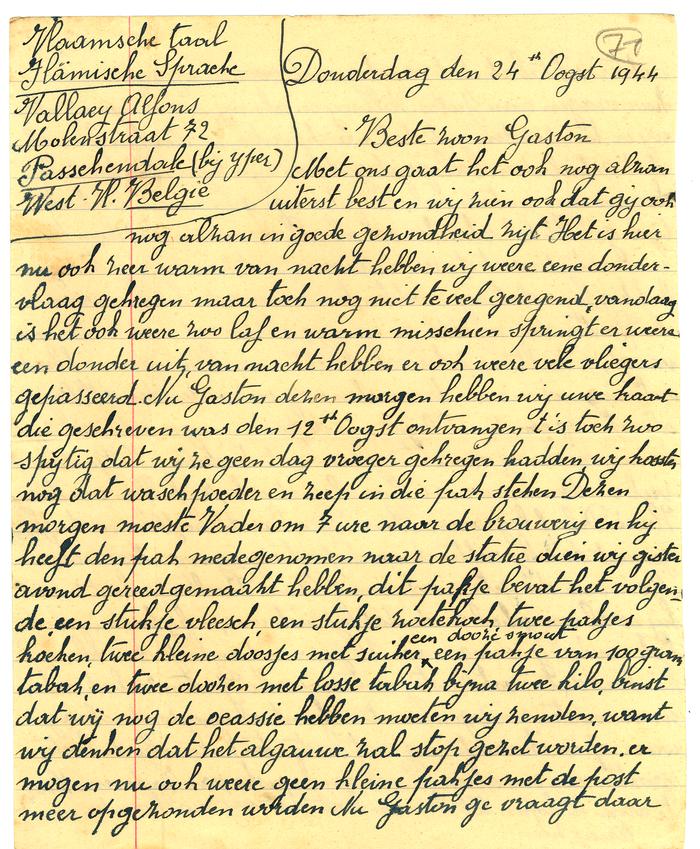 71
Vlaamsche taal
Flämische Sprache
Vallaey Alfons
Molenstraat 72
Passchendale (bij yper)
West. Vl. België
Donderdag den 24th Oogst 1944
Beste zoon Gaston
Met ons gaat het ook nog alzan
uiterst best en wij zien ook dat gij ook
nog alzan in goede gezondheid zijt Het is hier
nu ook zeer warm van nacht hebben wij weere eene donder-
vlaag gekregen maar toch nog niet te veel geregend, vandaag
is het ook weere zoo laf en warm misschien springt er weere
een donder uit, van nacht hebben er ook weere vele vliegers
gepasseerd. Nu Gaston dezen morgen hebben wij uwe kaart
die geschreven was den 12th Oogst ontvangen t'is toch zoo
spijtig dat wij ze geen dag vroeger gekregen hadden, wij kosten
nog dat waschpoeder en zeep in die pak steken Dezen
morgen moeste Vader om 7 ure naar de brouwerij en hij
heeft den pak medegenomen naar de statie dien wij gister
avond gereedgemaakt hebben, dit pakje bevat het volgen-
de, een stukje vleesch, een stukje zoetekoek, twee pakjes
koeken, twee kleine doosjes met suiker, een pakje van 100 gram
een dooze sprout
tabak, en twee doozen met losse tabak bijna twee kilo, binst
dat wij nog de ocassie hebben moeten wij zenden, want
wij denken dat het algauwe zal stop gezet worden. er
mogen nu ook weere geen kleine pakjes met de post
meer opgezonden worden Nu Gaston ge vraagt daar